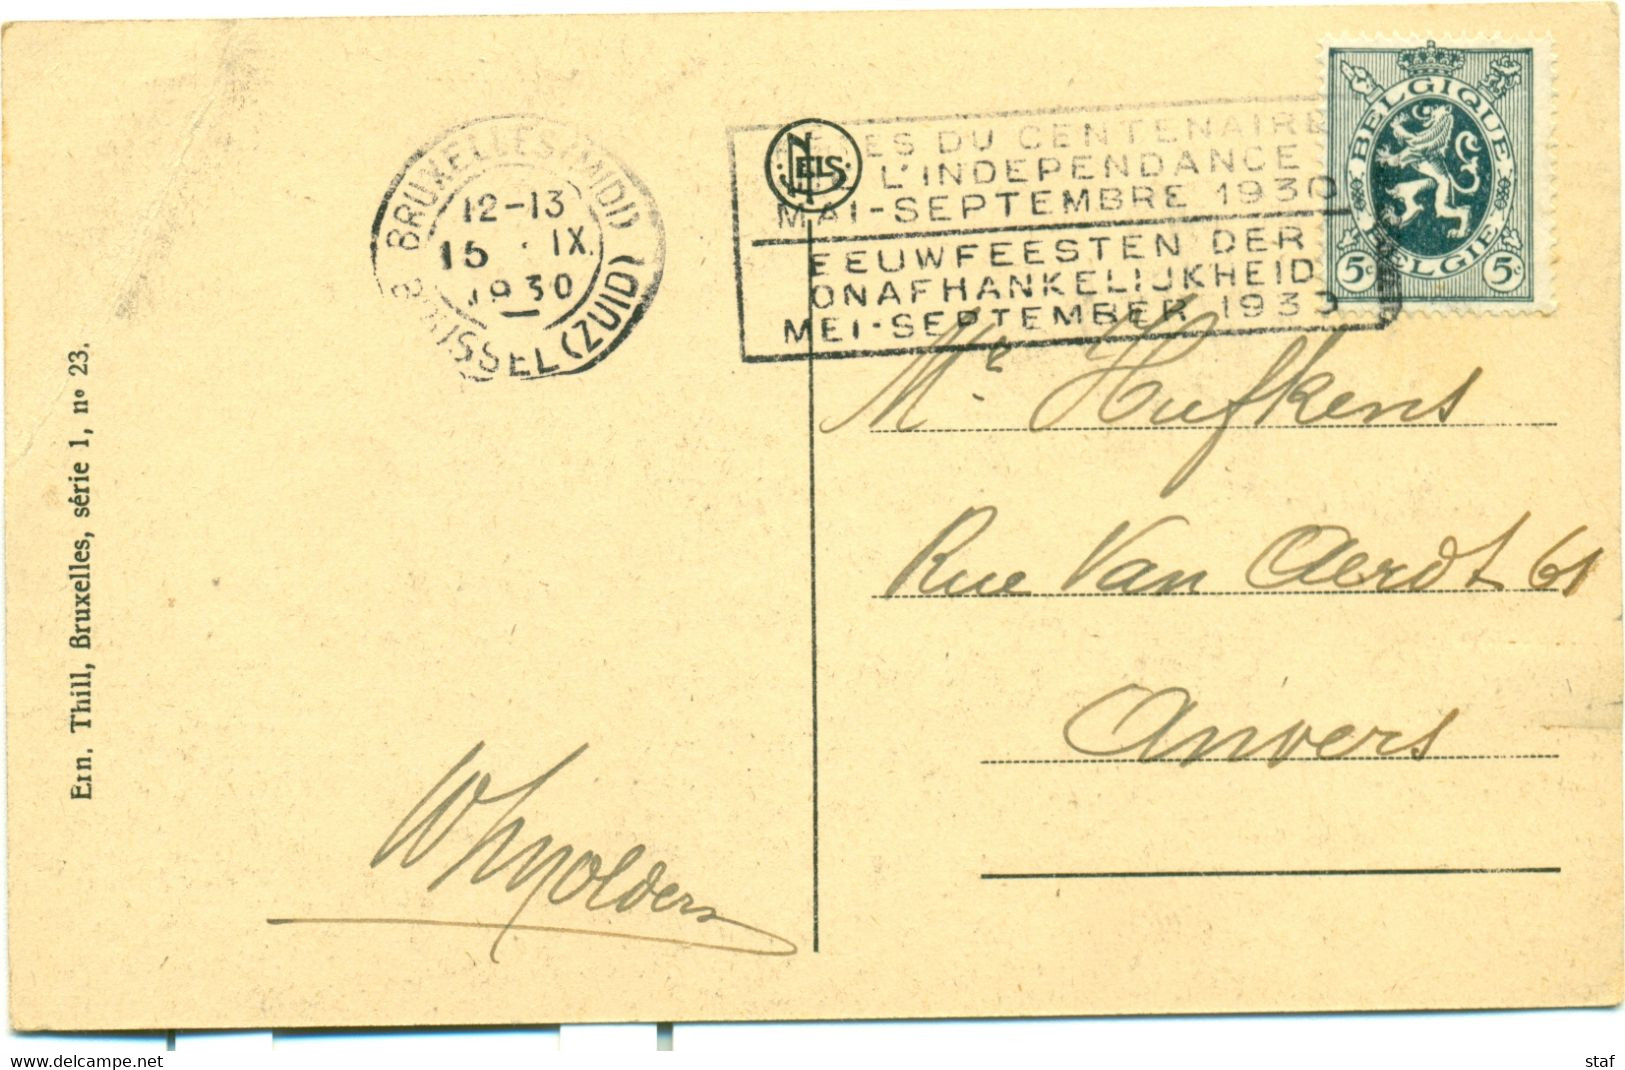 BRUXELLES (MIDI)
12-13
15 · IX
1930
BRUSSEL (ZUID)
NELS
DU CENTENAIRE
L'INDEPENDANCE
MAI-SEPTEMBRE 1930
EEUWFEESTEN DER
ONAFHANKELIJKHEID
MEI-SEPTEMBER 1930
BELGIQUE
BELGIE
5c 5c
Mr Hufkens
Rue Van Aerdt 61
Anvers
Ern. Thill, Bruxelles, série 1, nº 23.
delcampe.net
staf